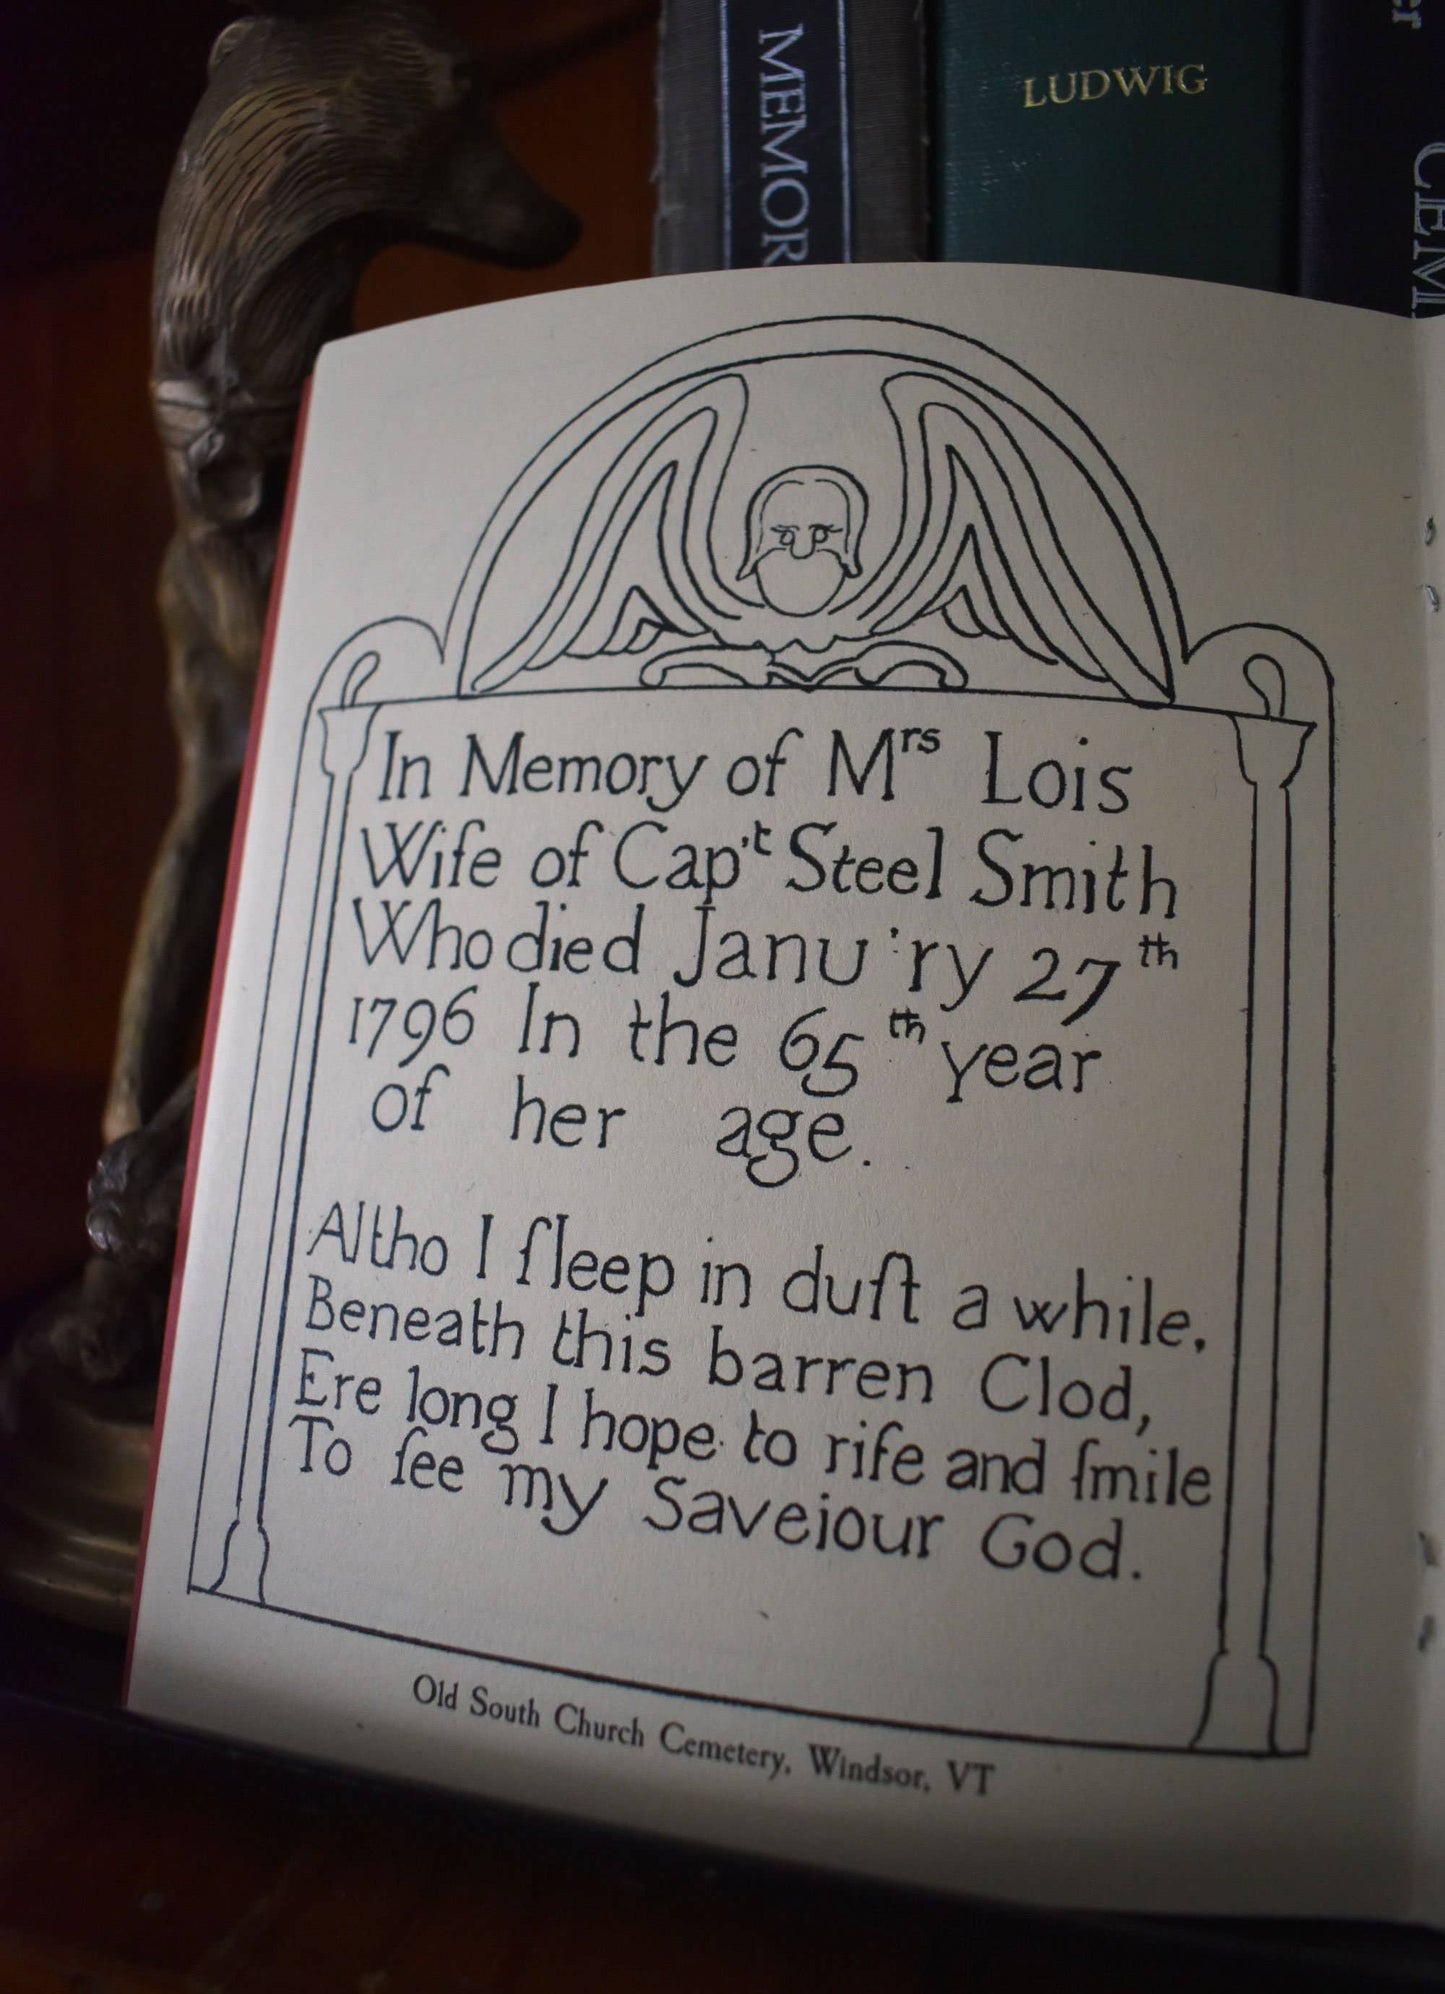 MEMOR
LUDWIG
er
CEM
In Memory of Mrs Lois
Wife of Cap't Steel Smith
Who died Janu'ry 27th
1796 In the 65th year
of her age.
Altho I ſleep in duſt a while,
Beneath this barren Clod,
Ere long I hope to riſe and ſmile
To ſee my Saveiour God.
Old South Church Cemetery, Windsor, VT